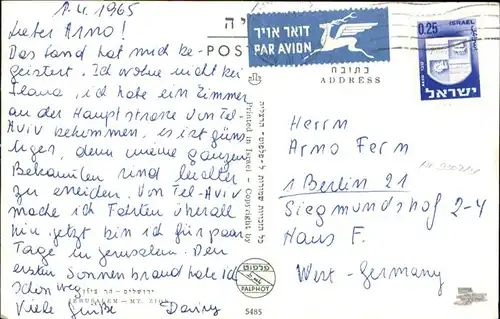 1.4.1965
Lieber Arno!
Das Land hat mich be-
geistert. Ich wohne nicht bei
Ilana, ich habe ein Zimmer
an der Hauptstrasse von Tel-
Aviv bekommen, es ist güns-
tiger, denn meine ganzen
Bekannten sind leichter
zu erreichen. Von Tel-Aviv
mache ich Fahrten überall
hin. Jetzt bin ich für paar
Tage in Jerusalem. Den
ersten Sonnenbrand habe ich
schon weg.
Viele Grüße
ירושלים - הר ציון
JERUSALEM - MT. ZION
POST
דואר אויר
PAR AVION
כתובת
ADDRESS
0.25
ISRAEL
ישראל
Printed in Israel. Copyright by
פלפוט
PALPHOT
5485
Herrn
Arno Ferm
1 Berlin 21
Siegmundshof 2-4
Haus F.
West-Germany